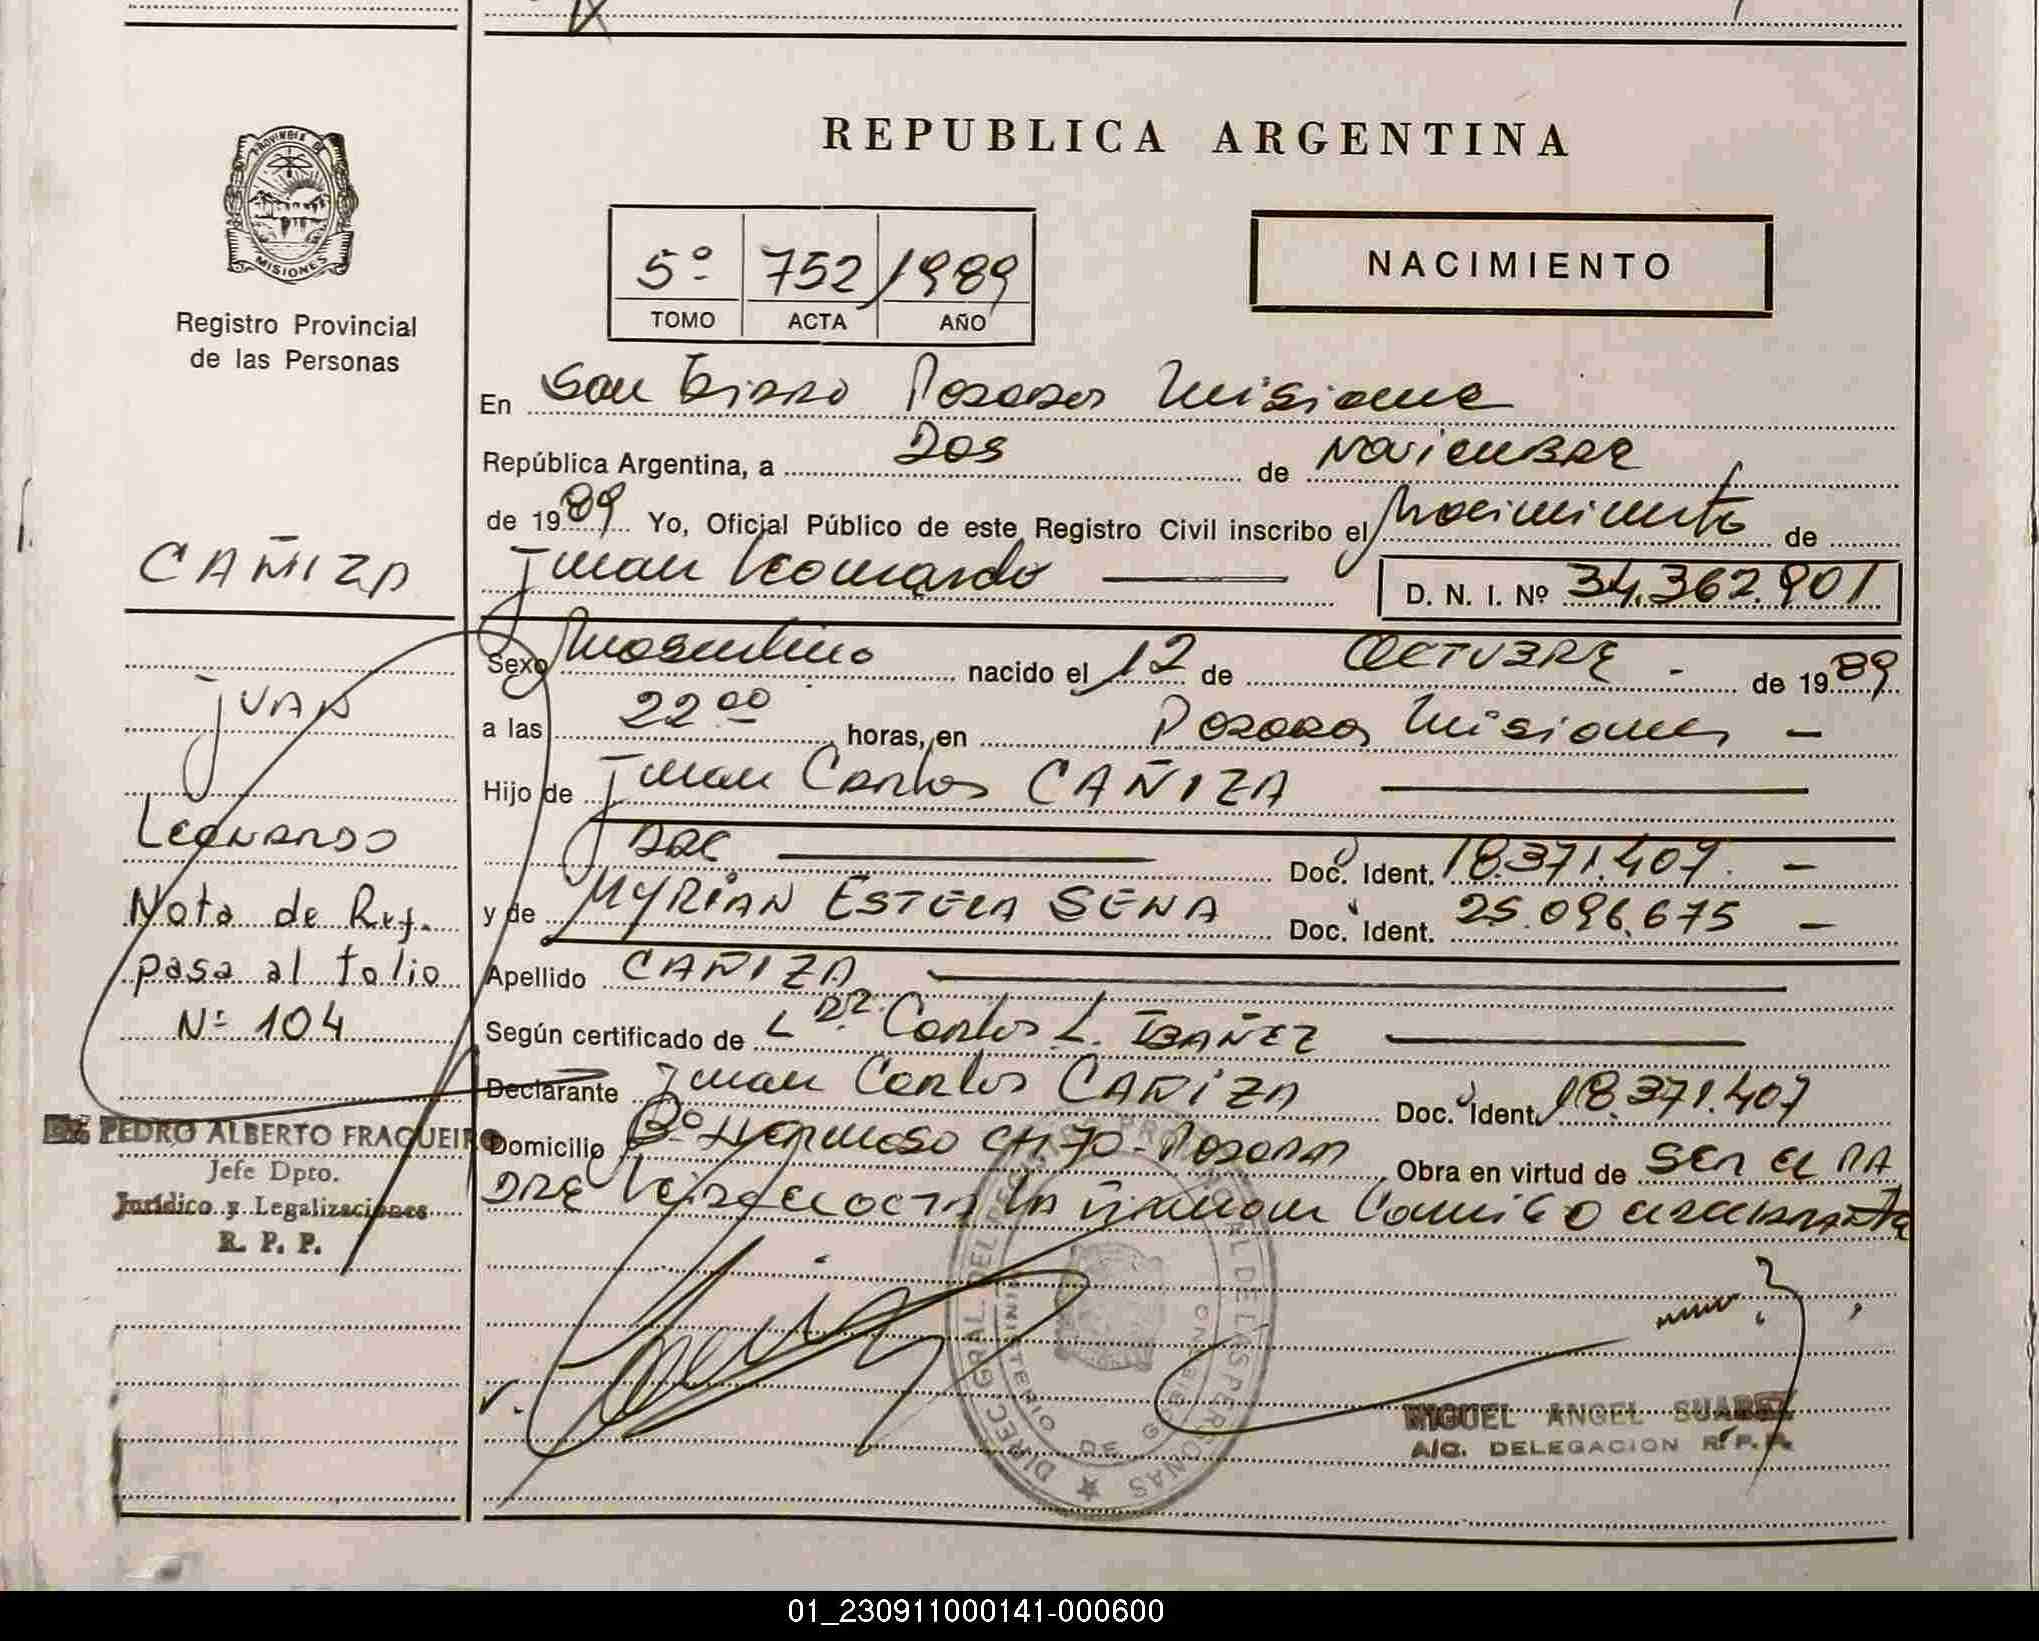 REPUBLICA ARGENTINA
PROVINCIA DE MISIONES
Registro Provincial
de las Personas
5º 752 1989
TOMO ACTA AÑO
NACIMIENTO
En San Isidro Posadas Misiones
República Argentina, a Dos de Noviembre
de 1989 Yo, Oficial Público de este Registro Civil inscribo el Nacimiento de
Juan Leonardo D. N. I. Nº 34.362.901
Sexo Masculino nacido el 12 de OCTUBRE - de 1989
a las 22 00 horas, en Posadas Misiones -
Hijo de Juan Carlos CAÑIZA
Doc. Ident. 18.371.407. -
y de MYRIAN ESTELA SENA Doc. Ident. 25.096.675 -
Apellido CAÑIZA
Según certificado de L Dr. Carlos L. IBAÑEZ
Declarante Juan Carlos CAÑIZA Doc. Ident. 18.371.407
Domicilio Bº Hermoso CH 70 - Posadas Obra en virtud de SER EL PA
DRE Leida el acta la firman conmigo el declarante
CAÑIZA
JUAN
LEONARDO
Nota de Ref.
pasa al folio
Nº 104
PEDRO ALBERTO FRAQUEIRO
Jefe Dpto.
Jurídico y Legalizaciones
R. P. P.
DIRECC GRAL. DEL REG. PROVINCIAL DE LAS PERSONAS
MINISTERIO DE GOBIERNO
MIGUEL ANGEL SUAREZ
A/C. DELEGACION R. P. P.
01_230911000141-000600